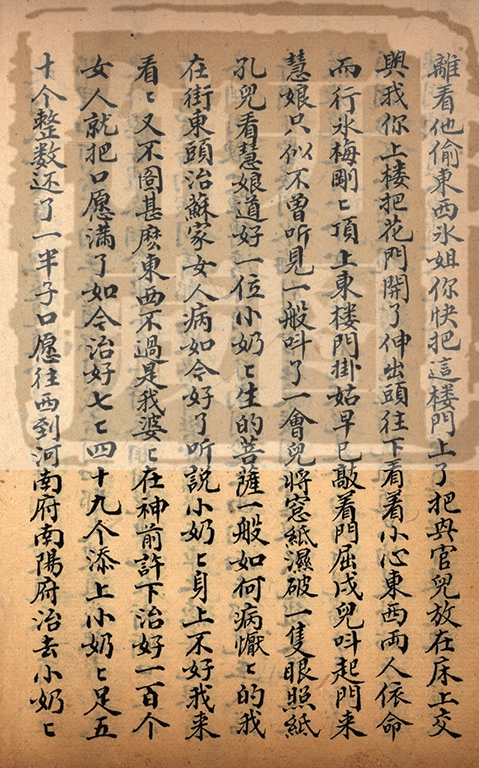 離看他偷東西氷姐你快把這楼門上了把與官兒放在床上交
與我你上楼把花門開了伸出頭往下看着小心東西両人依命
而行氷梅剛〻頂上東楼門掛姑早已敲着門屈戌兒叫起門来
慧娘只似不曾听見一般叫了一會兒将窓紙濕破一隻眼照紙
孔兒看慧娘道好一位小奶〻生的菩薩一般如何病懨〻的我
在街東頭治蘇家女人病如今好了听説小奶〻身上不好我来
看〻又不圖甚麽東西不過是我婆〻在神前許下治好一百个
女人就把口愿满了如今治好七〻四十九个添上小奶〻足五
十个整数还了一半子口愿往西到河南府南陽府治去小奶〻